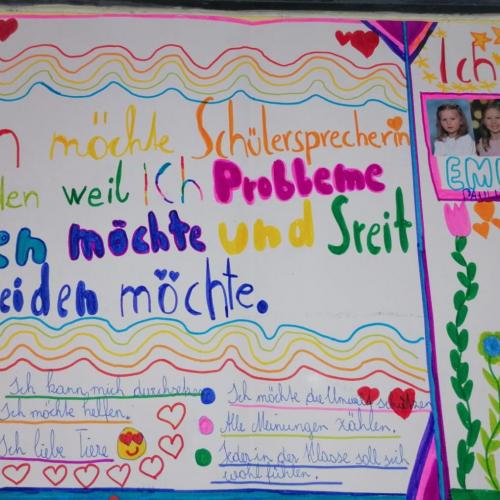 n möchte Schülersprecherin
den weil ICH Probbeme
en möchte und Sreit
eiden möchte.
Ich kann mich durchsetzen
Ich möchte helfen.
Ich liebe Tiere
Ich möchte die Umwelt schützen
Alle Meinungen zählen.
Jeder in der Klasse soll sich
wohl fühlen.
Ich
EM